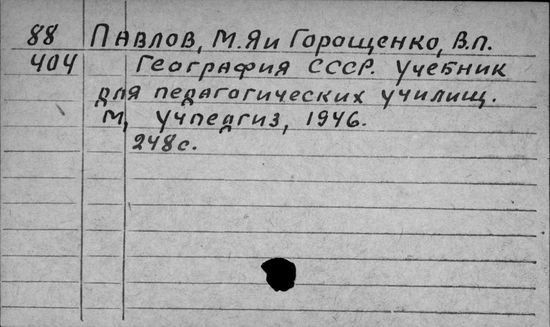 88 Павлов, М.Я и Горощенко, В.П.
404 География СССР. Учебник
для педагогических училищ.
М, Учпедгиз, 1946.
248с.